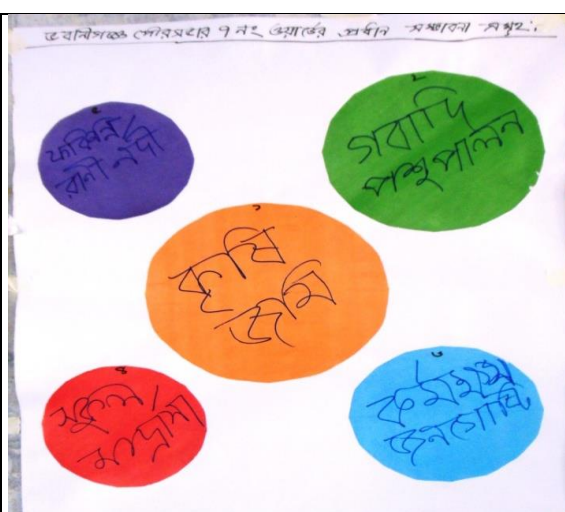 ভবানীগঞ্জ পৌরসভার ৭ নং ওয়ার্ডের প্রধান সম্ভাবনা সমূহ:
৫
রানী নদী
২
গবাদি
পশুপালন
১
কৃষি
জমি
৪
স্কুল/
মাদ্রাসা
৩
কর্মক্ষম
জনগোষ্ঠি